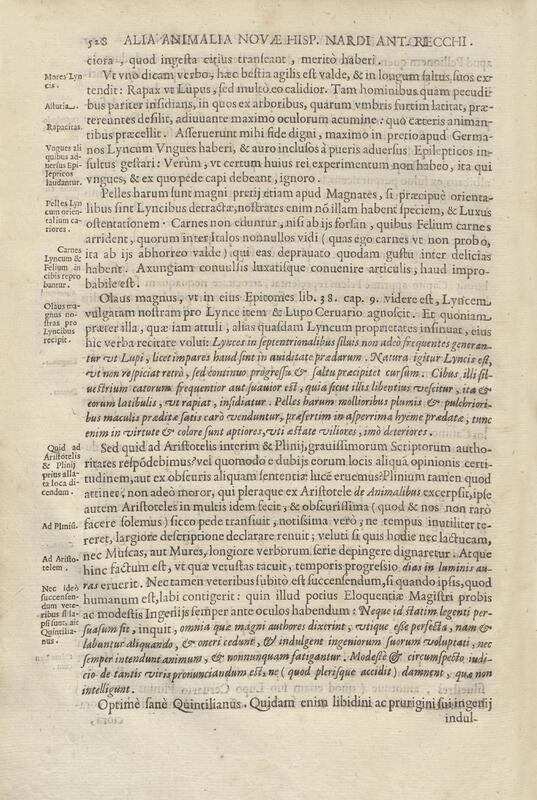 528 ALIA ANIMALIA NOVÆ HISP. NARDI ANT. RECCHI.
ciora, quod ingesta citius transeant, meritò haberi.
Mores Lyn
cis.
Vt vno dicam verbo, hæc bestia agilis est valde, & in longum saltus suos ex
tendit: Rapax vt Lupus, sed multò eo calidior. Tam hominibus quam pecudi
Astutia.
bus pariter insidians, in quos ex arboribus, quarum vmbris furtim latitat, præ-
tereuntes desilit, adiuuante maximo oculorum acumine: quò cæteris animan-
Rapacitas.
tibus præcellit. Asseruerunt mihi fide digni, maximo in pretio apud Germa-
Vngues ali
quibus ad-
uersus Epi-
lepticos
laudantur.
nos Lyncum Vngues haberi, & auro inclusos à pueris aduersus Epilepticos in-
sultus gestari: Verùm, vt certum huius rei experimentum non habeo, ita qui
vngues, & ex quo pede capi debeant, ignoro.
Pelles Lyn
cum orien-
talium ca-
riores.
Pelles harum sunt magni pretij etiam apud Magnates, si præcipuè orienta-
libus sint Lyncibus detractæ, nostrates enim nō illam habent speciem, & Luxus
ostentationem. Carnes non eduntur, nisi ab ijs forsan, quibus Felium carnes
Carnes
Lyncum &
Felium in
cibis repro
buntur.
arrident, quorum inter Italos nonnullos vidi (quas ego carnes vt non probo,
ita ab ijs abhorreo valde) qui eas deprauato quodam gustu inter delicias
habent. Axungiam conuulsis luxatisque conuenire articulis, haud impro-
babile est.
Olaus ma-
gnus no-
stras pro
Lyncibus
recipit.
Olaus magnus, vt in eius Epitomes lib. 38. cap. 9. videre est, Lyncem
vulgatam nostram pro Lynce item & Lupo Ceruario agnoscit. Et quoniam
præter illa, quæ iam attuli, alias quasdam Lyncum proprietates insinuat, eius
hic verba recitare volui: Lynces in septentrionalibus siluis non adeò frequentes generan-
tur vt Lupi, licet impares haud sint in auiditate prædarum. Natura igitur Lyncis est,
vt non respiciat retrò, sed continuo progressu & saltu præcipitet cursum. Cibus illi sil-
uestrium catorum frequentior aut suauior est, quia sicut illis libentius vescitur, ita &
eorum latibulis, vt rapiat, insidiatur. Pelles harum mollioribus plumis & pulchriori-
bus maculis præditæ satis carò venduntur, præsertim in asperrima hyeme prædatæ, tunc
enim in virtute & colore sunt aptiores, vti æstate viliores, imò deteriores.
Quid ad
Aristotelis
& Plinij
prius alla-
ta loca di-
cendum.
Sed quid ad Aristotelis interim & Plinij, grauissimorum Scriptorum autho-
ritates respōdebimus? vel quomodo e dubijs eorum locis aliquā opinionis certi-
tudinem, aut ex obscuris aliquam sententiæ lucē eruemus? Plinium ramen quod
attinet, non adeò moror, qui pleraque ex Aristotele de Animalibus excerpsit, ipse
autem Aristoteles in multis idem fecit, & obscurissima (quod & nos non rarò
Ad Pliniū.
facere solemus) sicco pede transiuit, notissima verò, ne tempus inutiliter te-
reret, largiore descriptione declarare renuit; veluti si quis hodie nec lactucam,
nec Muscas, aut Mures, longiore verborum serie depingere dignaretur. Atque
Ad Aristo-
telem.
hinc factum est, vt quæ vetustas tacuit, temporis progressio dias in luminis au-
ras eruerit. Nec tamen veteribus subitò est succensendum, si quando ipsis, quod
Nec ideò
succensen-
dum vete-
ribus si la-
psi sunt, ait
Quintilia-
nus.
humanum est, labi contigerit: quin illud potius Eloquentiæ Magistri probis
ac modestis Ingenijs semper ante oculos habendum: Neque id statim legenti per-
suasum sit, inquit, omnia quæ magni authores dixerint, vtique esse perfecta, nam &
labuntur aliquando, & oneri cedunt, & indulgent ingeniorum suorum voluptati, nec
semper intendunt animum, & nonnunquam fatigantur. Modestè & circumspecto iudi-
cio de tantis viris pronunciandum est, ne (quod plerisque accidit) damnent, quæ non
intelligunt.
Optimè sanè Quintilianus. Quidam enim libidini ac prurigini sui ingenij
indul-